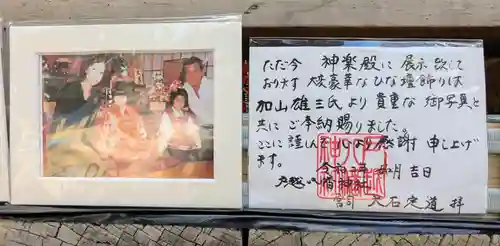 ただ今 神楽殿に 展示致して
おります 大変豪華なひな壇飾りは
加山雄三氏より 貴重な 御写真と
共に ご奉納賜りました。
ここに謹んで 心より感謝 申し上げ
ます。
令和 年 如月 吉日
戸越八幡神社
宮司 大石定道 拝